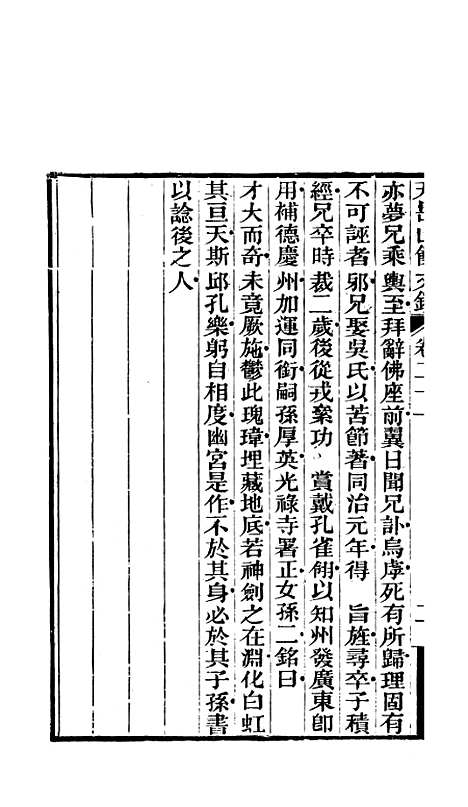 天岳山館文鈔　卷二十一　二
亦夢兄乘輿至拜辭佛座前翼日聞兄訃烏虖死有所歸理固有
不可誣者邪兄娶吳氏以苦節著同治元年得　旨旌尋卒子積
經兄卒時裁二歲後從戎案功　賞戴孔雀翎以知州發廣東卽
用補德慶州加運同銜嗣孫厚英光祿寺署正女孫二銘曰
才大而奇未竟厥施鬱此瑰瑋埋藏地底若神劍之在淵化白虹
其亘天斯邱孔樂躬自相度幽宮是作不於其身必於其子孫書
以諗後之人